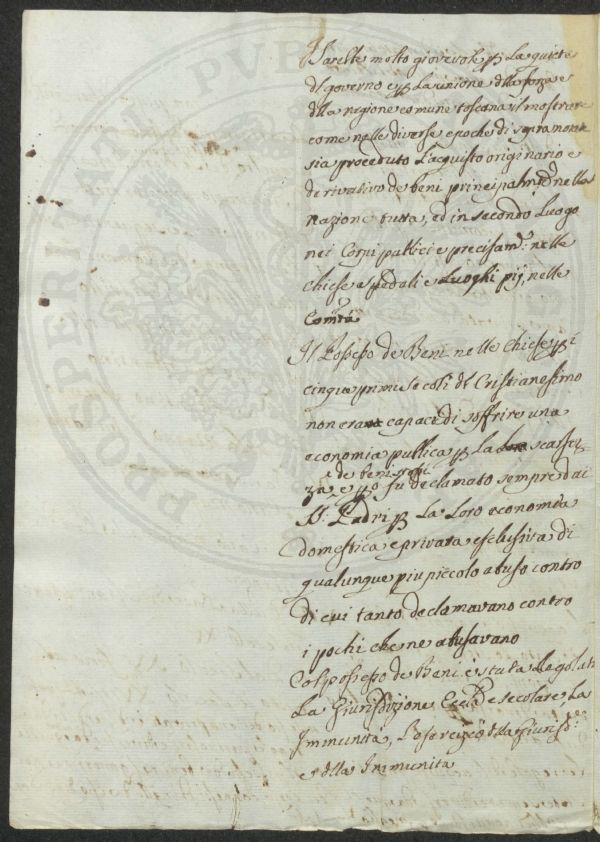 Sarebbe molto giovevole p la quiete
del governo e p la unione della forza e
della ragione comune toscana il mostrare
come nelle diverse epoche di sopra notate
sia proceduto l'acquisto originario e
derivativo de beni principalmte nella
nazione tutta, ed in secondo luogo
nei Corpi publici e precisamte: nelle
chiese spedali e Luoghi pij, nelle
Comtà
Il Possesso de Beni nelle Chiese p i
cinque primi secoli del Cristianesimo
non era capace di soffrire una
economia publica p la scarsez-
de beni stessi
za e pò fu declamato sempre dai
SS. Padri p la Loro economia
domestica e privata esclusiva di
qualunque piu piccolo abuso contro
di cui tanto declamavano contro
i pochi che ne abusavano
Col possesso de Beni è stata regolata
La Giurisdizione Eccles e secolare, La
Immunità, l'esercizio della Giurisd:
e della Immunità
PVBLICA
PROSPERITA